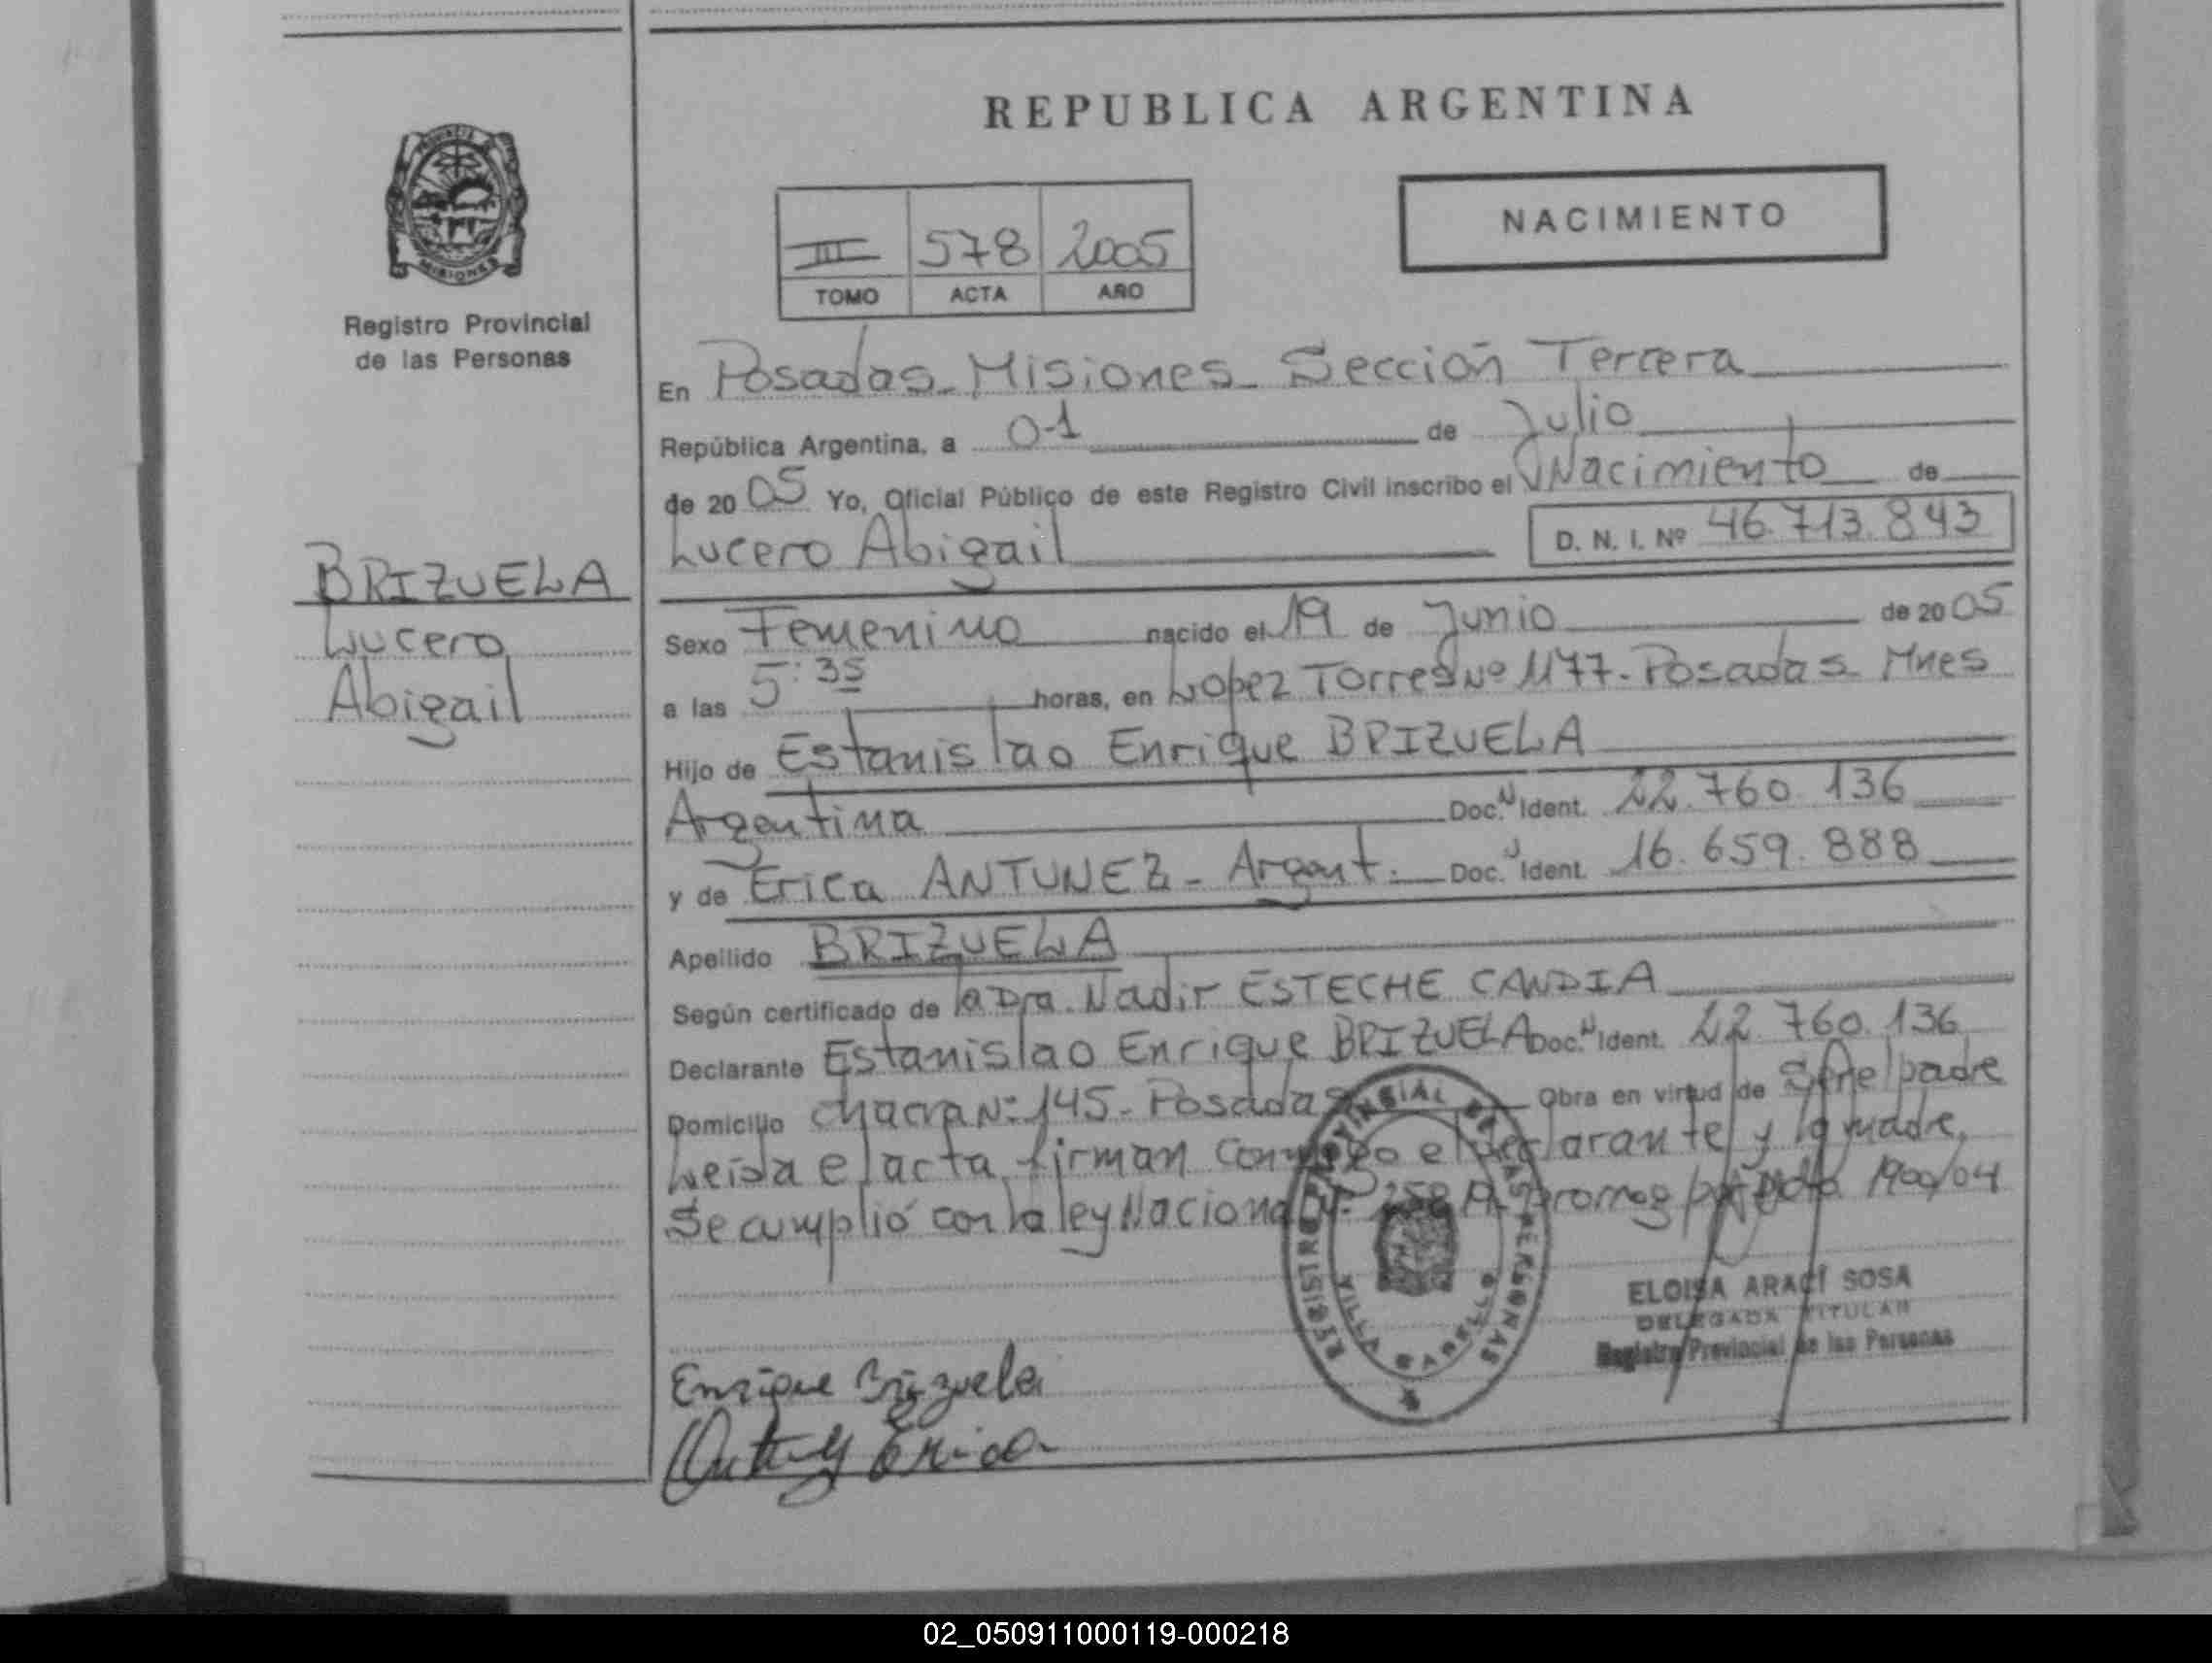 REPUBLICA ARGENTINA
NACIMIENTO
III 578 2005
TOMO ACTA AÑO
PROVINCIA DE
MISIONES
Registro Provincial
de las Personas
BRIZUELA
Lucero
Abigail
En Posadas - Misiones - Sección Tercera
República Argentina, a 01 de Julio
de 20 05 Yo, Oficial Público de este Registro Civil inscribo el Nacimiento de
Lucero Abigail D. N. I. Nº 46.713.843
Sexo Femenino nacido el 19 de Junio de 20 05
a las 5:35 horas, en Lopez Torres Nº 1177 - Posadas - Mnes
Hijo de Estanislao Enrique BRIZUELA
Argentina Doc. N Ident. 22.760.136
y de Erica ANTUNEZ - Argent. Doc. Ident. 16.659.888
Apellido BRIZUELA
Según certificado de la Dra. Nadir ESTECHE CANDIA
Declarante Estanislao Enrique BRIZUELA Doc. N Ident. 22.760.136
Domicilio chacra Nº 145 - Posadas Obra en virtud de Ser el padre
Leída el acta firman conmigo el declarante y la madre,
Se cumplió con la ley Nacional 1900/04
REGISTRO PROVINCIAL DE LAS PERSONAS
VILLA SARELLO
ELOISA ARACÍ SOSA
DELEGADA TITULAR
Registro Provincial de las Personas
Enrique Brizuela
Erica
02_050911000119-000218